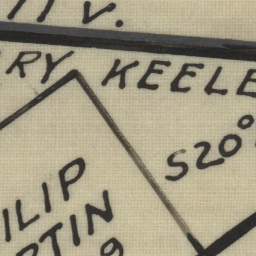 V.
RY KEELE
S20°
ILIP
RTIN
9